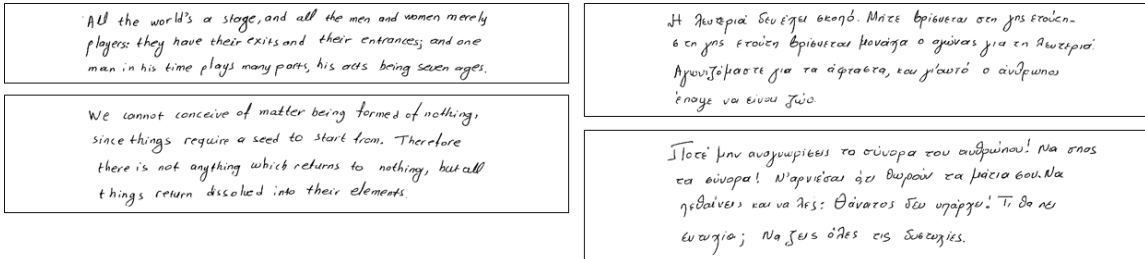 All the world's a stage, and all the men and women merely
players: they have their exits and their entrances; and one
man in his time plays many parts, his acts being seven ages.
We cannot conceive of matter being formed of nothing,
since things require a seed to start from. Therefore
there is not anything which returns to nothing, but all
things return dissolved into their elements.
Η λευτεριά δεν έχει σκοπό. Μήτε βρίσκεται στη γης ετούτη.
στη γης ετούτη βρίσκεται μονάχα ο αγώνας για τη λευτεριά.
Αγωνιζόμαστε για τα άφταστα, και γι'αυτό ο άνθρωπος
έπαψε να είναι ζώο.
Ποτέ μην αναγνωρίσεις τα σύνορα του ανθρώπου! Να σπας
τα σύνορα! Ν'αρνιέσαι ό,τι θωρούν τα μάτια σου. Να
πεθαίνεις και να λες: Θάνατος δεν υπάρχει! Τι θα πει
ευτυχία; Να ζεις όλες τις δυστυχίες.